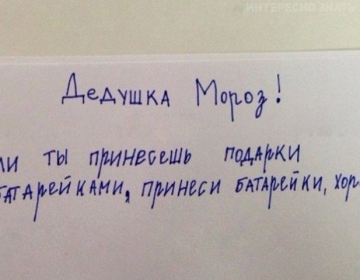 ИНТЕРЕСНО ЗНАТЬ
Дедушка Мороз!
ты принесешь подарки
батарейками, принеси батарейки,